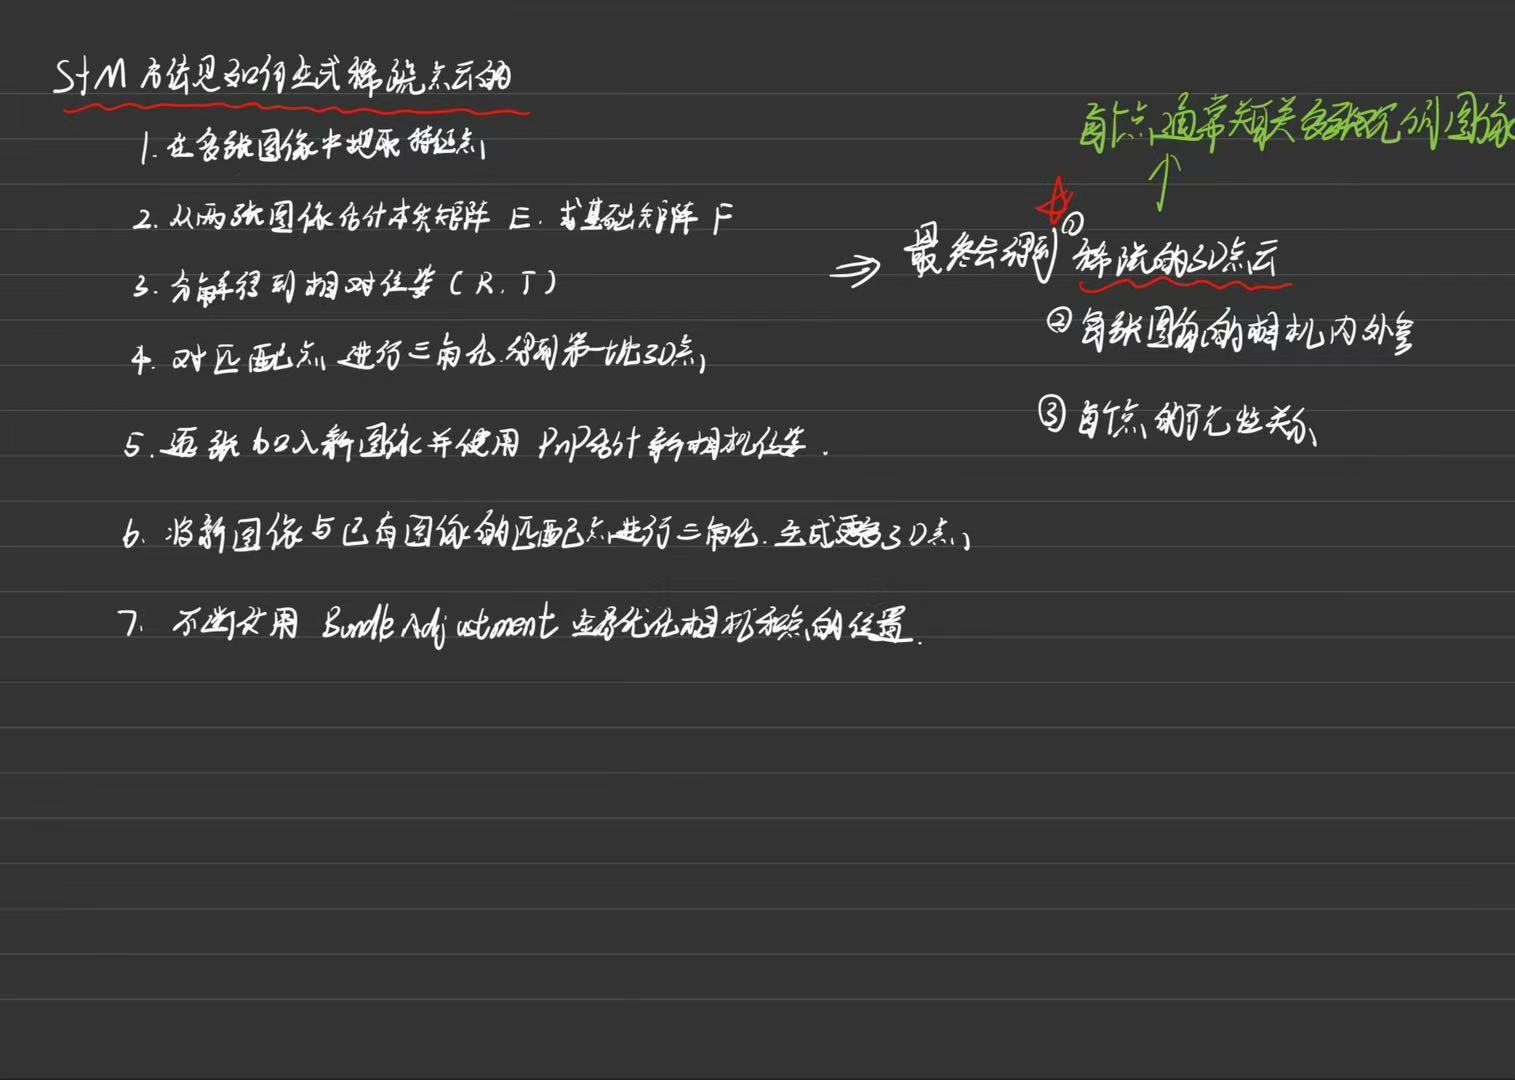 SfM方法是如何生成稀疏点云的
1. 在多张图像中提取特征点
2. 从两张图像估计本质矩阵 E. 或基础矩阵 F
3. 分解得到相对位姿 (R, T)
4. 对匹配点进行三角化. 得到第一批3D点
5. 逐张加入新图像并使用 PnP估计新相机位姿.
6. 将新图像与已有图像的匹配点进行三角化. 生成更多3D点
7. 不断使用 Bundle Adjustment 全局优化相机和点的位置.
每个点通常关联多张观测图像
↑
⇒ 最终会得到 ☆ ① 稀疏的3D点云
② 每张图像的相机内外参
③ 每个点的可见性关系